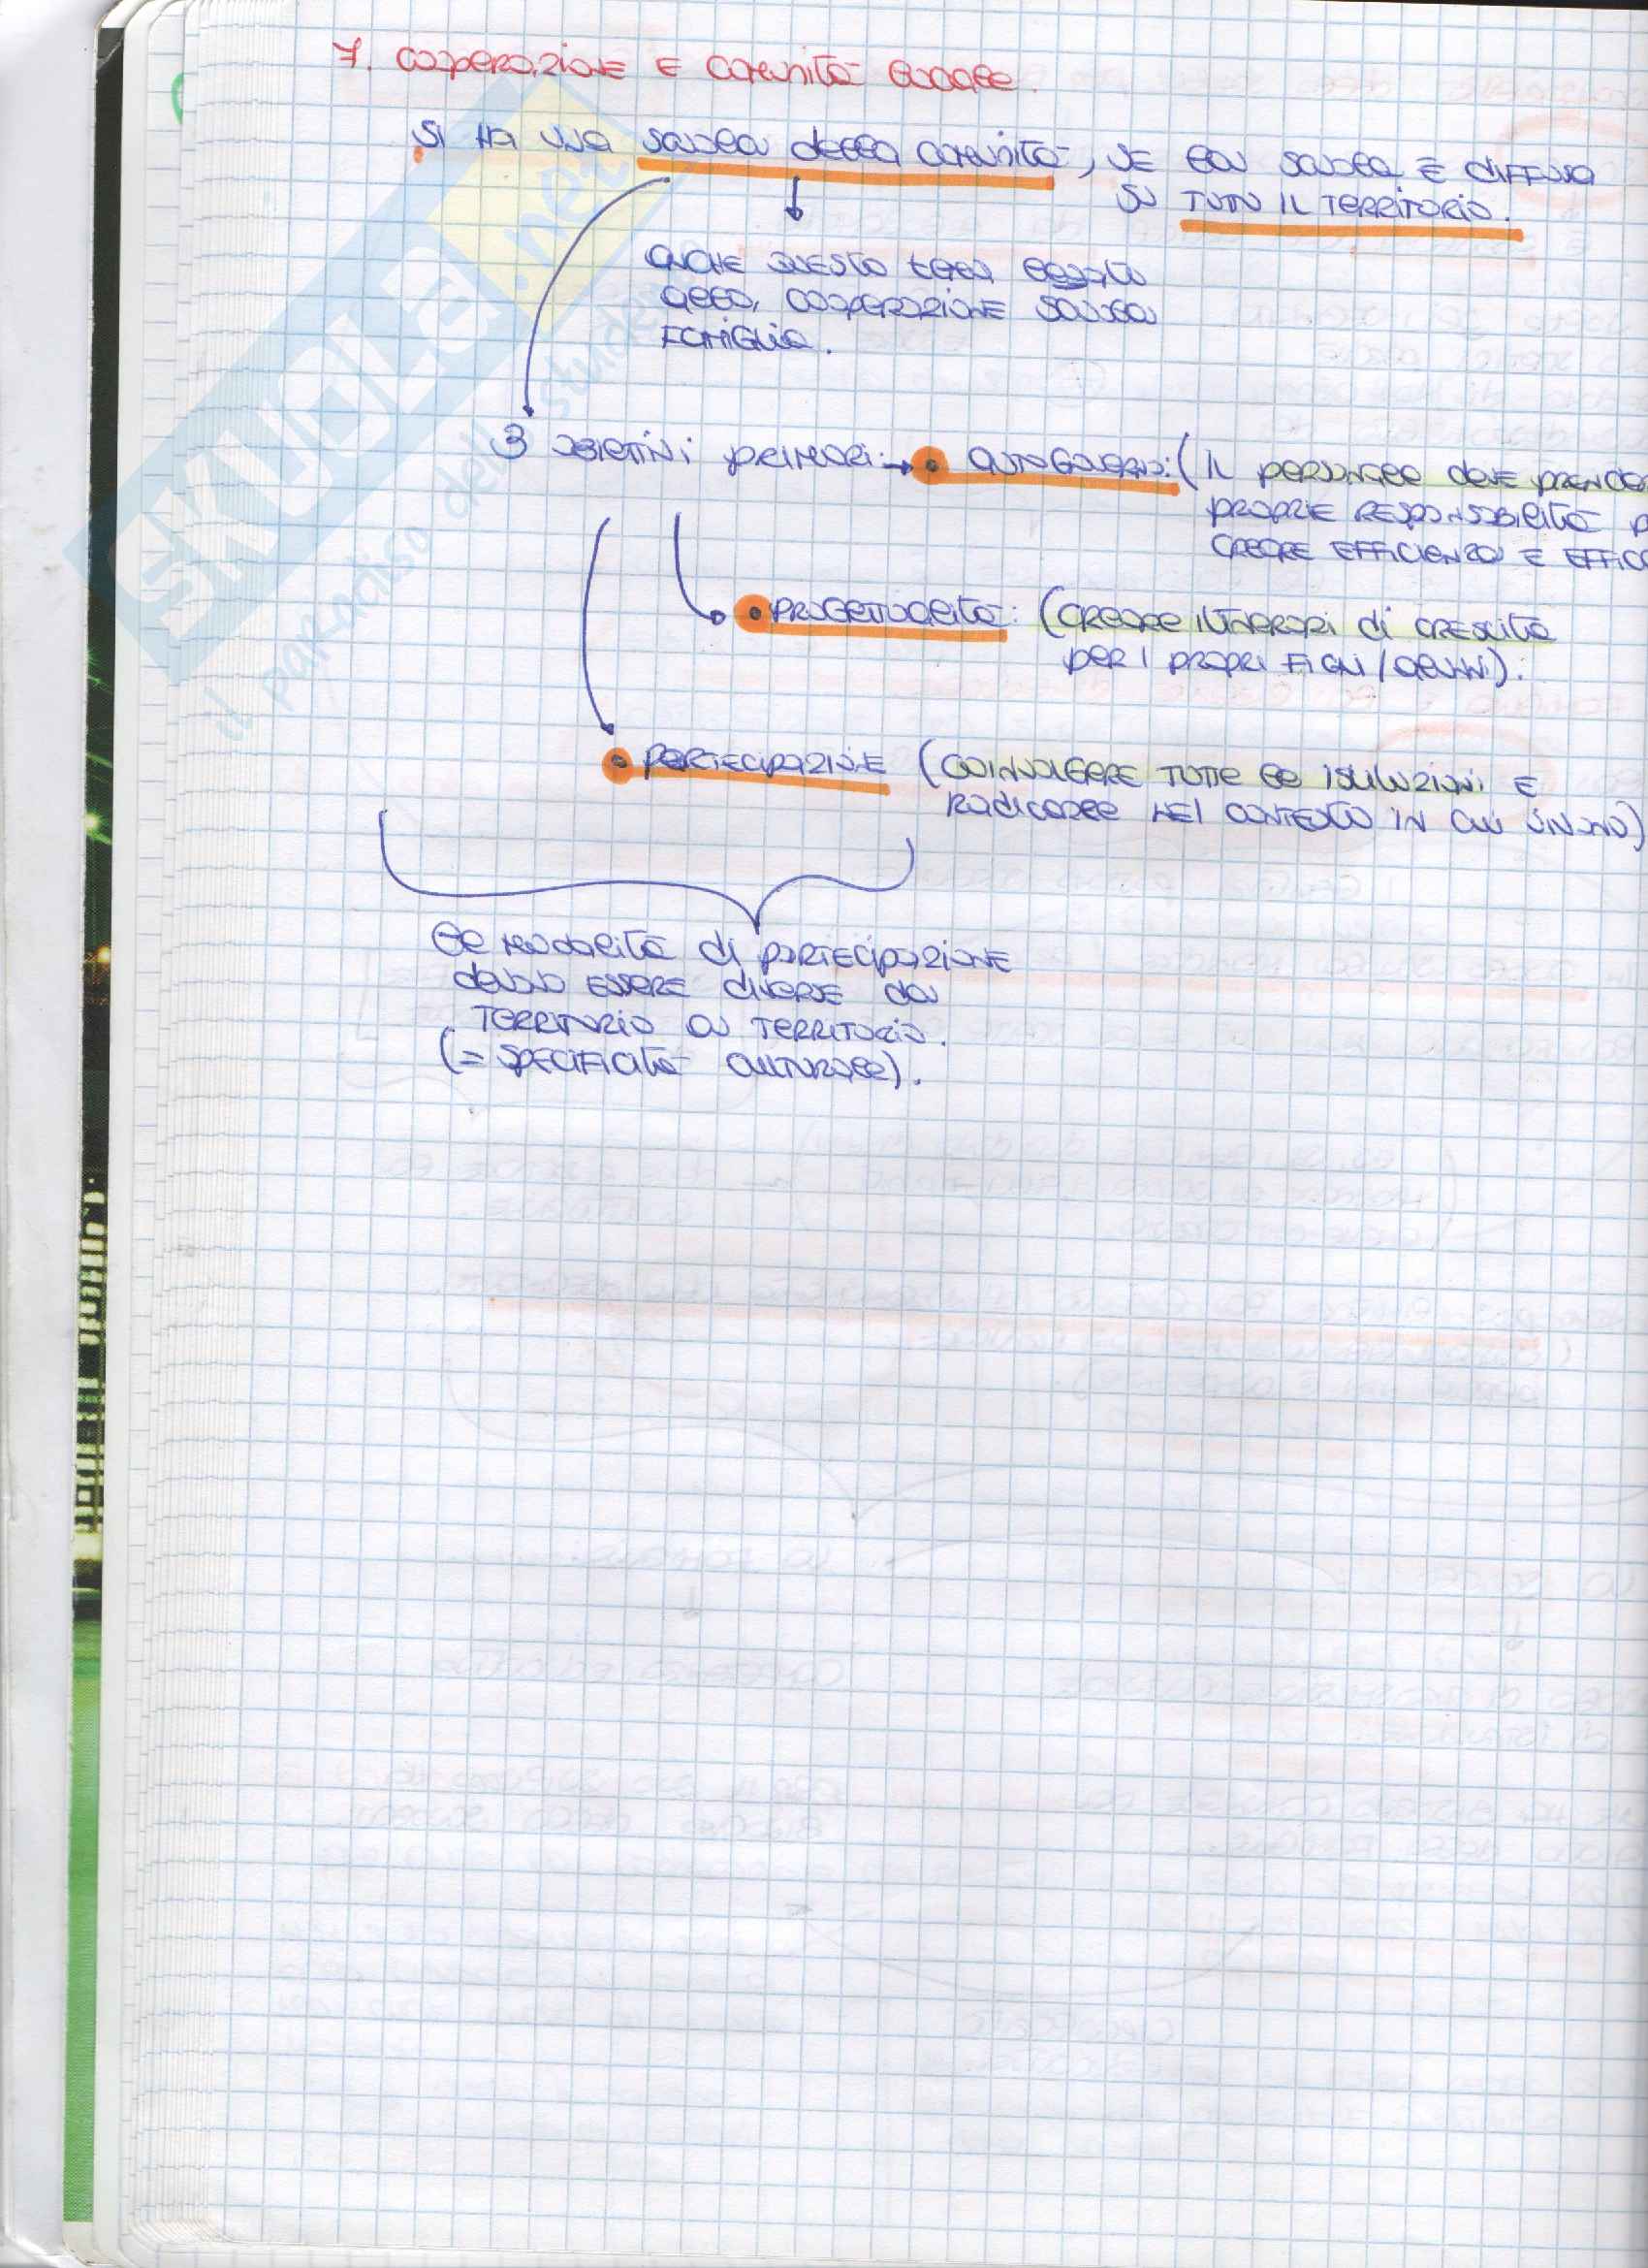 7. COOPERAZIONE E COMUNITÀ LOCALE.
SI HA UNA SCUOLA DELLA COMUNITÀ, SE LA SCUOLA È DIFFUSA
SU TUTTO IL TERRITORIO.
ANCHE QUESTO TEMA LEGATO
ALLA COOPERAZIONE SCUOLA
FAMIGLIA.
3 OBIETTIVI PRIMARI: → • AUTOGOVERNO: (IL PERSONALE DEVE PRENDE
PROPRIE RESPONSABILITÀ P
CREARE EFFICIENZA E EFFICA
• PROGETTUALITÀ: (CREARE ITINERARI di CRESCITA
PER I PROPRI FIGLI/ALUNNI).
• PARTECIPAZIONE (COINVOLGERE TUTTE LE ISTITUZIONI E
RADICARLE NEL CONTESTO IN CUI VIVONO)
LE MODALITÀ di PARTECIPAZIONE
DEVONO ESSERE DIVERSE DA
TERRITORIO A TERRITORIO.
(= SPECIFICITÀ CULTURALE).
SKUOLA.net
il paradiso dello studente